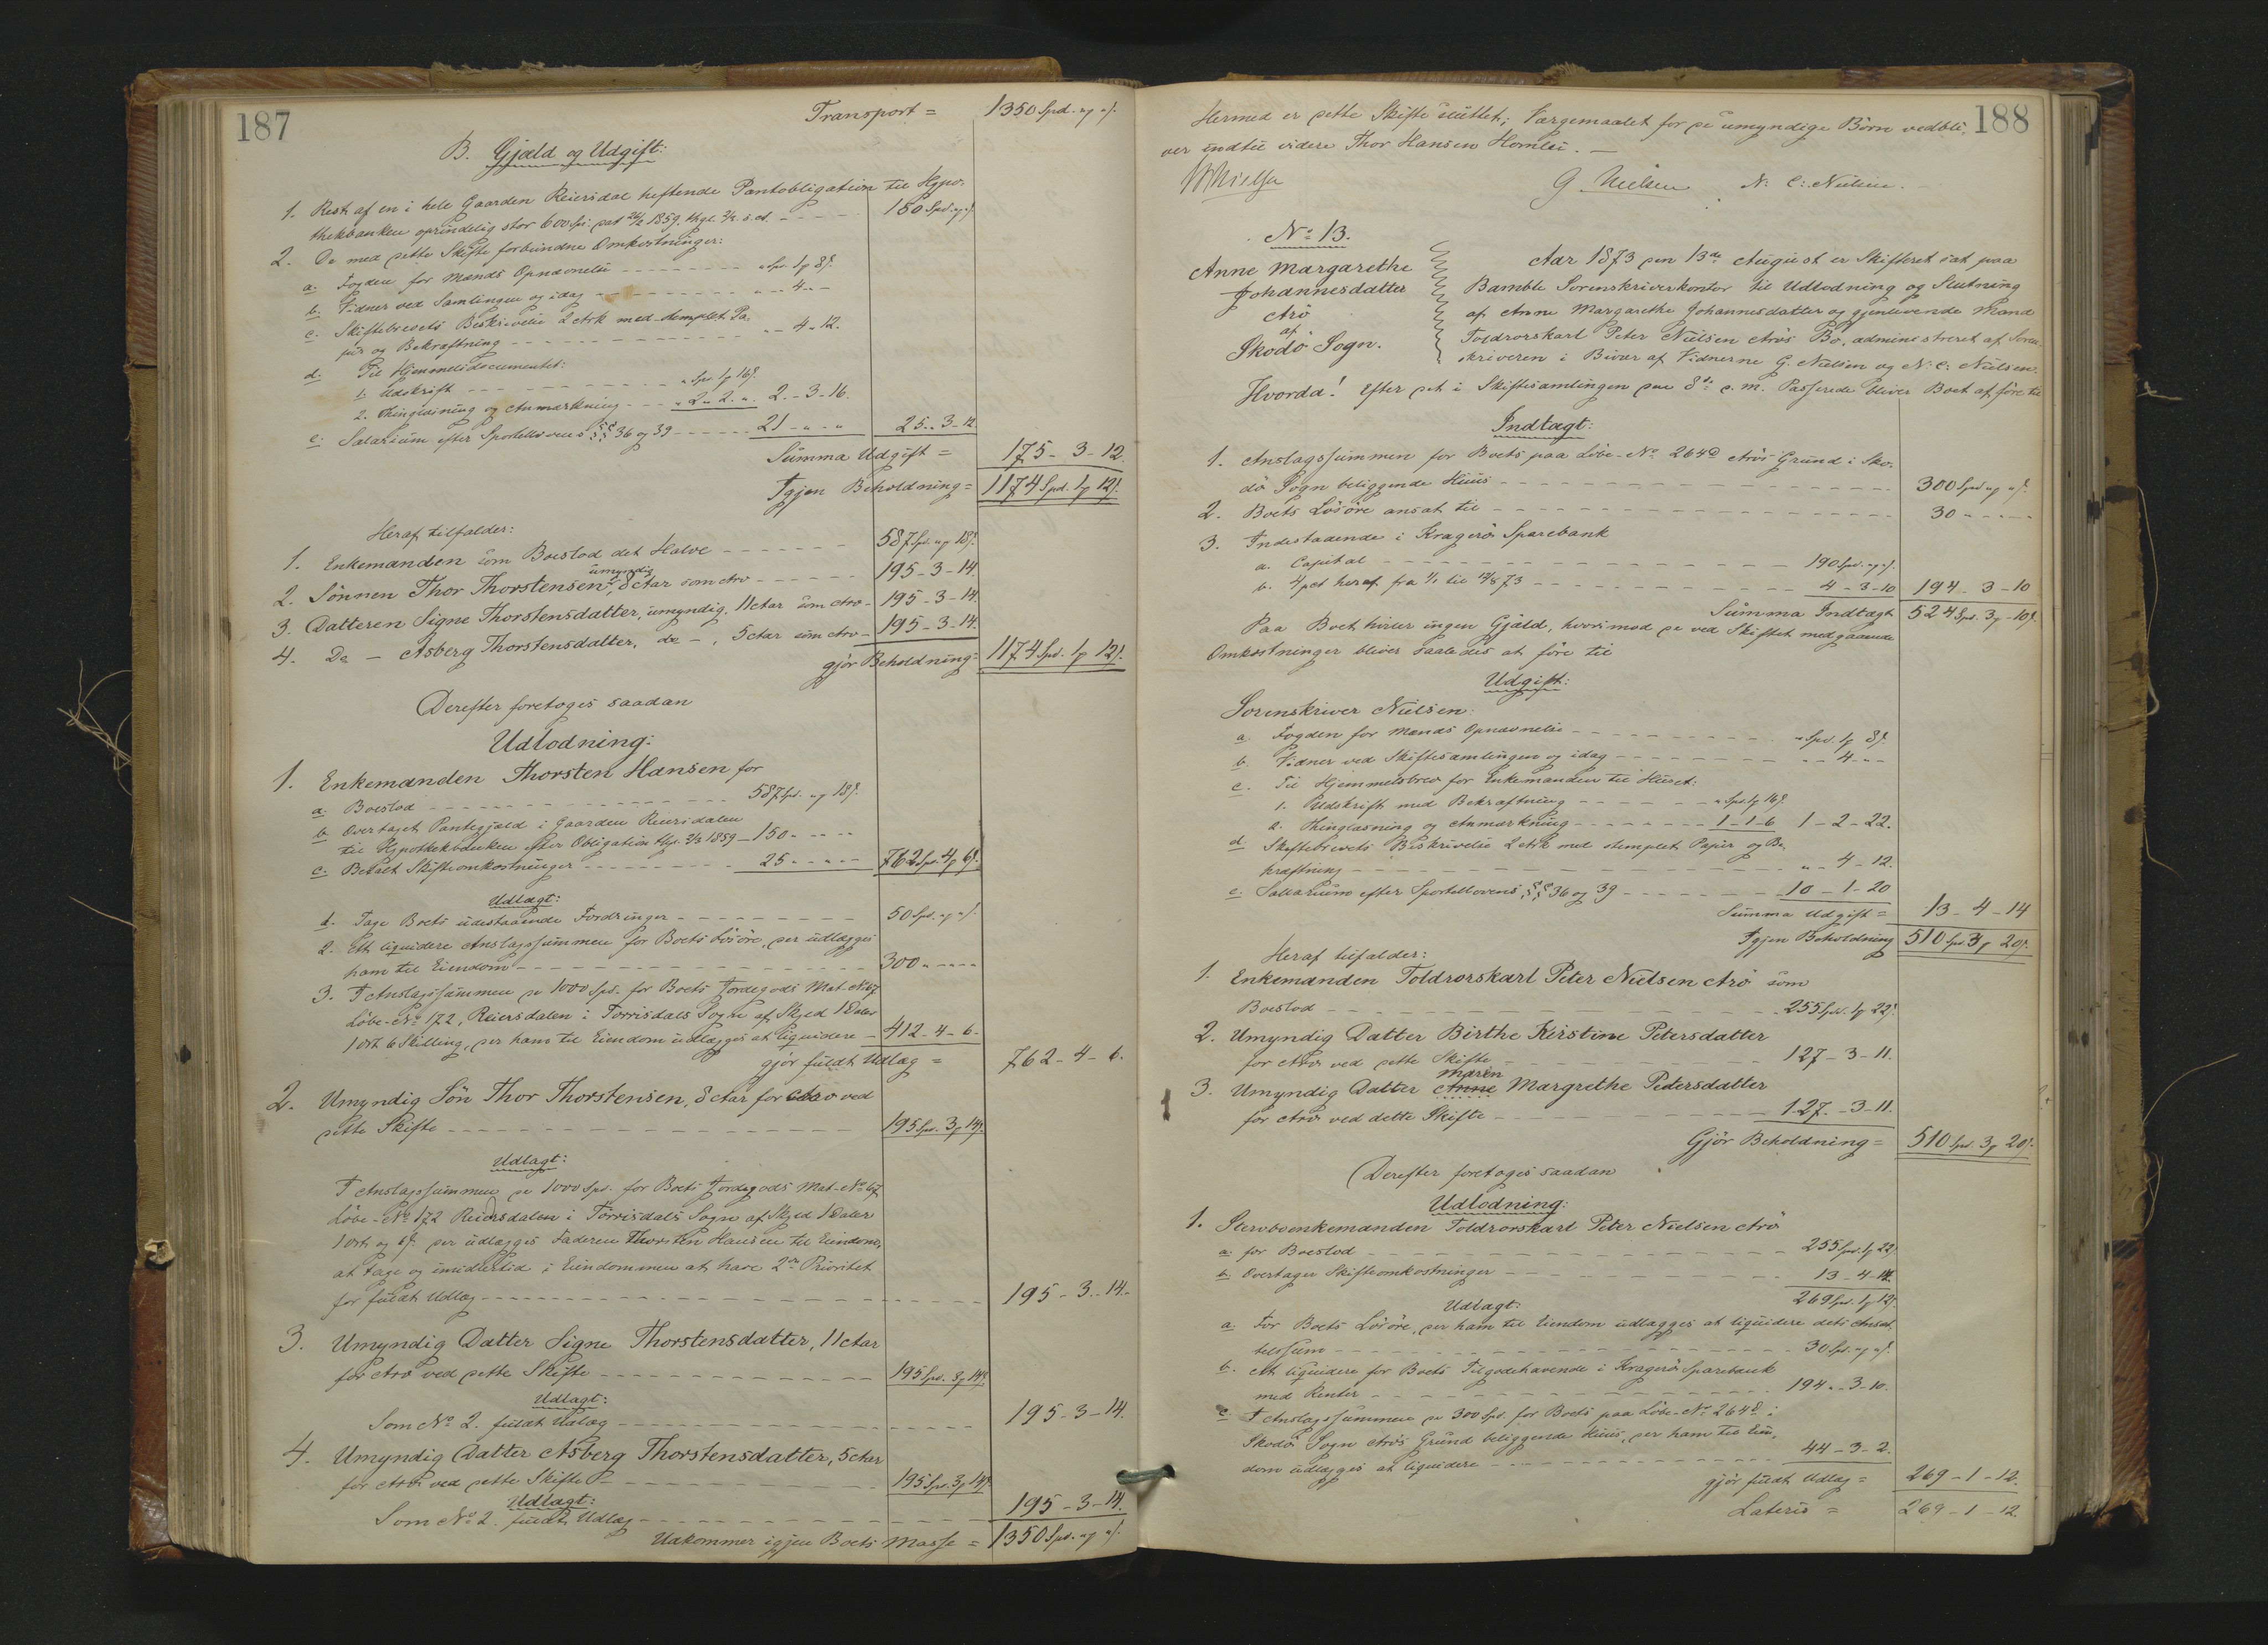 187
Transport = 1350 Spd. " ƒ "ſ.
B. Gjæld og Udgift:
1. Rest af en i hele Gaarden Reiersdal heftende Pantobligation til Hypo-
thekbanken oprindelig stor 600 Spd. dat. 1859. thgl. - - - 150 Spd. " ƒ "ſ.
2. De med dette Skifte forbundne Omkostninger:
a. Fogden for Mænds Opnævnelse - - - " Spd. 1ƒ 8ſ.
b. Vidner ved Samlingen og idag - - - " - 4 - "
c. Skiftebrevets Beskrivelse 2 Ark med stemplet Pa-
pir og Bekræftning - - - " - 4 - 12.
d. Til Hjemmelsdocumentet:
1. Udskrift - - - " Spd. 1ƒ 16ſ.
2. Thinglæsning og Anmærkning - - - " 2 - 2 - ". 2 - 3 - 16.
e. Salarium efter Sportellovens §§ 36 og 39 - - - 21 - " - " 25 - 3 - 12.
Summa Udgift = 175 - 3 - 12.
Igjen Beholdning = 1174 Spd. 1ƒ 12ſ.
Heraf tilfalder:
1. Enkemanden som Boeslod det Halve - - - 587 Spd. " ƒ 18ſ.
2. Sønnen Thor Thorstensen, umyndig, 8 Aar som Arv - - - 195 - 3 - 14.
3. Datteren Signe Thorstensdatter, umyndig. 11 Aar som Arv - 195 - 3 - 14.
4. Do - Asberg Thorstensdatter, do -, 5 Aar som Arv - 195 - 3 - 14.
gjør Beholdning = 1174 Spd. 1ƒ 12ſ.
Derefter foretoges saadan
Udlodning:
1. Enkemanden Thorsten Hansen for
a. Boeslod - - - 587 Spd. " ƒ 18ſ.
b. Overtaget Pantegjæld i Gaarden Reiersdalen
til Hypothekbanken efter Obligation thgl. 1859 - 150 - " - "
c. Betalt Skifteomkostninger - - - 25 - " - " 762 Spd. 4ƒ 6ſ.
Udlagt:
1. Tage Boets udestaaende Fordringer - - - 50 Spd. " ƒ "ſ.
2. At liquidere Anslagssummen for Boets Løsøre, der udlægges
ham til Eiendom - - - 300 - " - "
3. I Anslagssummen de 1000 Spd. for Boets Jordegods Mat-No 67
Løbe-No 172, Reiersdalen i Tørrisdals Sogn af Skyld 1 Daler
1 Ort 6 Skilling, der ham til Eiendom udlægges at liquidere - 412 - 4 - 6 -
gjør fuldt Udlæg = 762 - 4 - 6.
2. Umyndig Søn Thor Thorstensen, 8 Aar for Arv ved
dette Skifte - - - 195 Spd. 3ƒ 14ſ.
Udlagt:
I Anslagssummen de 1000 Spd. for Boets Jordegods Mat-No 67
Løbe-No 172 Reiersdalen i Tørrisdals Sogn af Skyld 1 Daler
1 Ort og 6ſ. der udlægges Faderen Thorsten Hansen til Eiendom,
at tage og imidlertid i Eiendommen at have 2den Prioritet
for fuldt Udlæg - - - 195 - 3 - 14.
3. Umyndig Datter Signe Thorstensdatter, 11 Aar
for Arv ved dette Skifte - - - 195 Spd. 3ƒ 14ſ.
Udlagt:
Som No 2. fuldt Udlæg - - - 195 - 3 - 14.
4. Umyndig Datter Asberg Thorstensdatter, 5 Aar
for Arv ved dette Skifte - - - 195 Spd. 3ƒ 14ſ.
Udlagt:
Som No 2. fuldt Udlæg - - - 195 - 3 - 14.
Udkommer igjen Boets Masse = 1350 Spd. " ƒ "ſ.
188
Hermed er dette Skifte sluttet; Værgemaalet for de umyndige Børn vedbli-
ver indtil videre Thor Hansen Homlei. -
G. Nielsen N: C: Nielsen.
No 13.
Anne Margarethe
Johannesdatter
Arø
af
Skødø Sogn.
Aar 1873 den 13de August er Skifteret sat paa
Bamble Sorenskriverkontor til Udlodning og Slutning
af Anne Margarethe Johannesdatter og gjenlevende Mand
Toldrorskarl Peter Nielsen Arøs Bo, administreret af Soren-
skriveren i Bivær af Vidnerne G. Nielsen og N. C. Nielsen.
Hvorda! Efter det i Skiftesamlingen den 8de d. m. Passerede bliver Boet at føre til
Indtægt:
1. Anslagssummen for Boets paa Løbe-No 264d Arøs Grund i Skø-
dø Sogn beliggende Huus - - - 300 Spd. " ƒ "ſ.
2. Boets Løsøre ansat til - - - 30 - " - "
3. Indestaaende i Kragerø Sparebank
a. Capital - - - 190 Spd. " ƒ "ſ.
b. 4 pct heraf fra 1/1 til 12/8 73 - - - 4 - 3 - 10 194 - 3 - 10
Summa Indtægt 524 Spd. 3ƒ - 10ſ.
Paa Boet hviler ingen Gjæld, hvorimod de ved Skiftet medgaaende
Omkostninger bliver saaledes at føre til
Udgift:
Sorenskriver Nielsen:
a. Fogden for Mænds Opnævnelse - - - " Spd. 1ƒ 8ſ.
b. Vidner ved Skiftesamlingen og idag - - - " - 4 - "
c. Til Hjemmelsbrev for Enkemanden til Huset:
1. Udskrift med Bekræftning - - - " Spd. 1ƒ 16ſ.
2. Thinglæsning og Anmærkning - - - 1 - 1 - 6 1 - 2 - 22.
d. Skiftebrevets Beskrivelse 2 Ark med stemplet Papir og Be-
kræftning - - - " - 4 - 12.
e. Sallarium efter Sportellovens §§ 36 og 39 - - - 10 - 1 - 20
Summa Udgift = 13 - 4 - 14
Igjen Beholdning 510 Spd. 3ƒ 20ſ.
Heraf tilfalder:
1. Enkemanden Toldrorskarl Peter Nielsen Arø som
Boeslod - - - 255 Spd. 1ƒ 22ſ.
2. Umyndig Datter Birthe Kirstine Petersdatter
for Arv ved dette Skifte - - - 127 - 3 - 11.
Maren
3. Umyndig Datter Anne Margrethe Petersdatter
for Arv ved dette Skifte - - - 127 - 3 - 11.
Gjør Beholdning = 510 Spd. 3ƒ 20ſ.
Derefter foretoges saadan
Udlodning:
1. Stervboenkemanden Toldrorskarl Peter Nielsen Arø
a. for Boeslod - - - 255 Spd. 1ƒ 22ſ.
b. Overtager Skifteomkostninger - - - 13 - 4 - 14.
269 Spd. 1ƒ 12ſ.
Udlagt:
a. For Boets Løsøre, der ham til Eiendom udlægges at liquidere dets Ansæt-
telsessum - - - 30 Spd. " ƒ "ſ.
b. At liquidere for Boets Tilgodehavende i Kragerø Sparebank
med Renter - - - 194 - 3 - 10.
c. I Anslagssummen de 300 Spd. for Boets paa Løbe-No 264d i
Skødø Sogn Arøs Grund beliggende Huus, der ham til Eien-
dom udlægges at liquidere - - - 44 - 3 - 2.
gjør fuldt Udlæg = 269 - 1 - 12.
Lateris = 269 - 1 - 12.